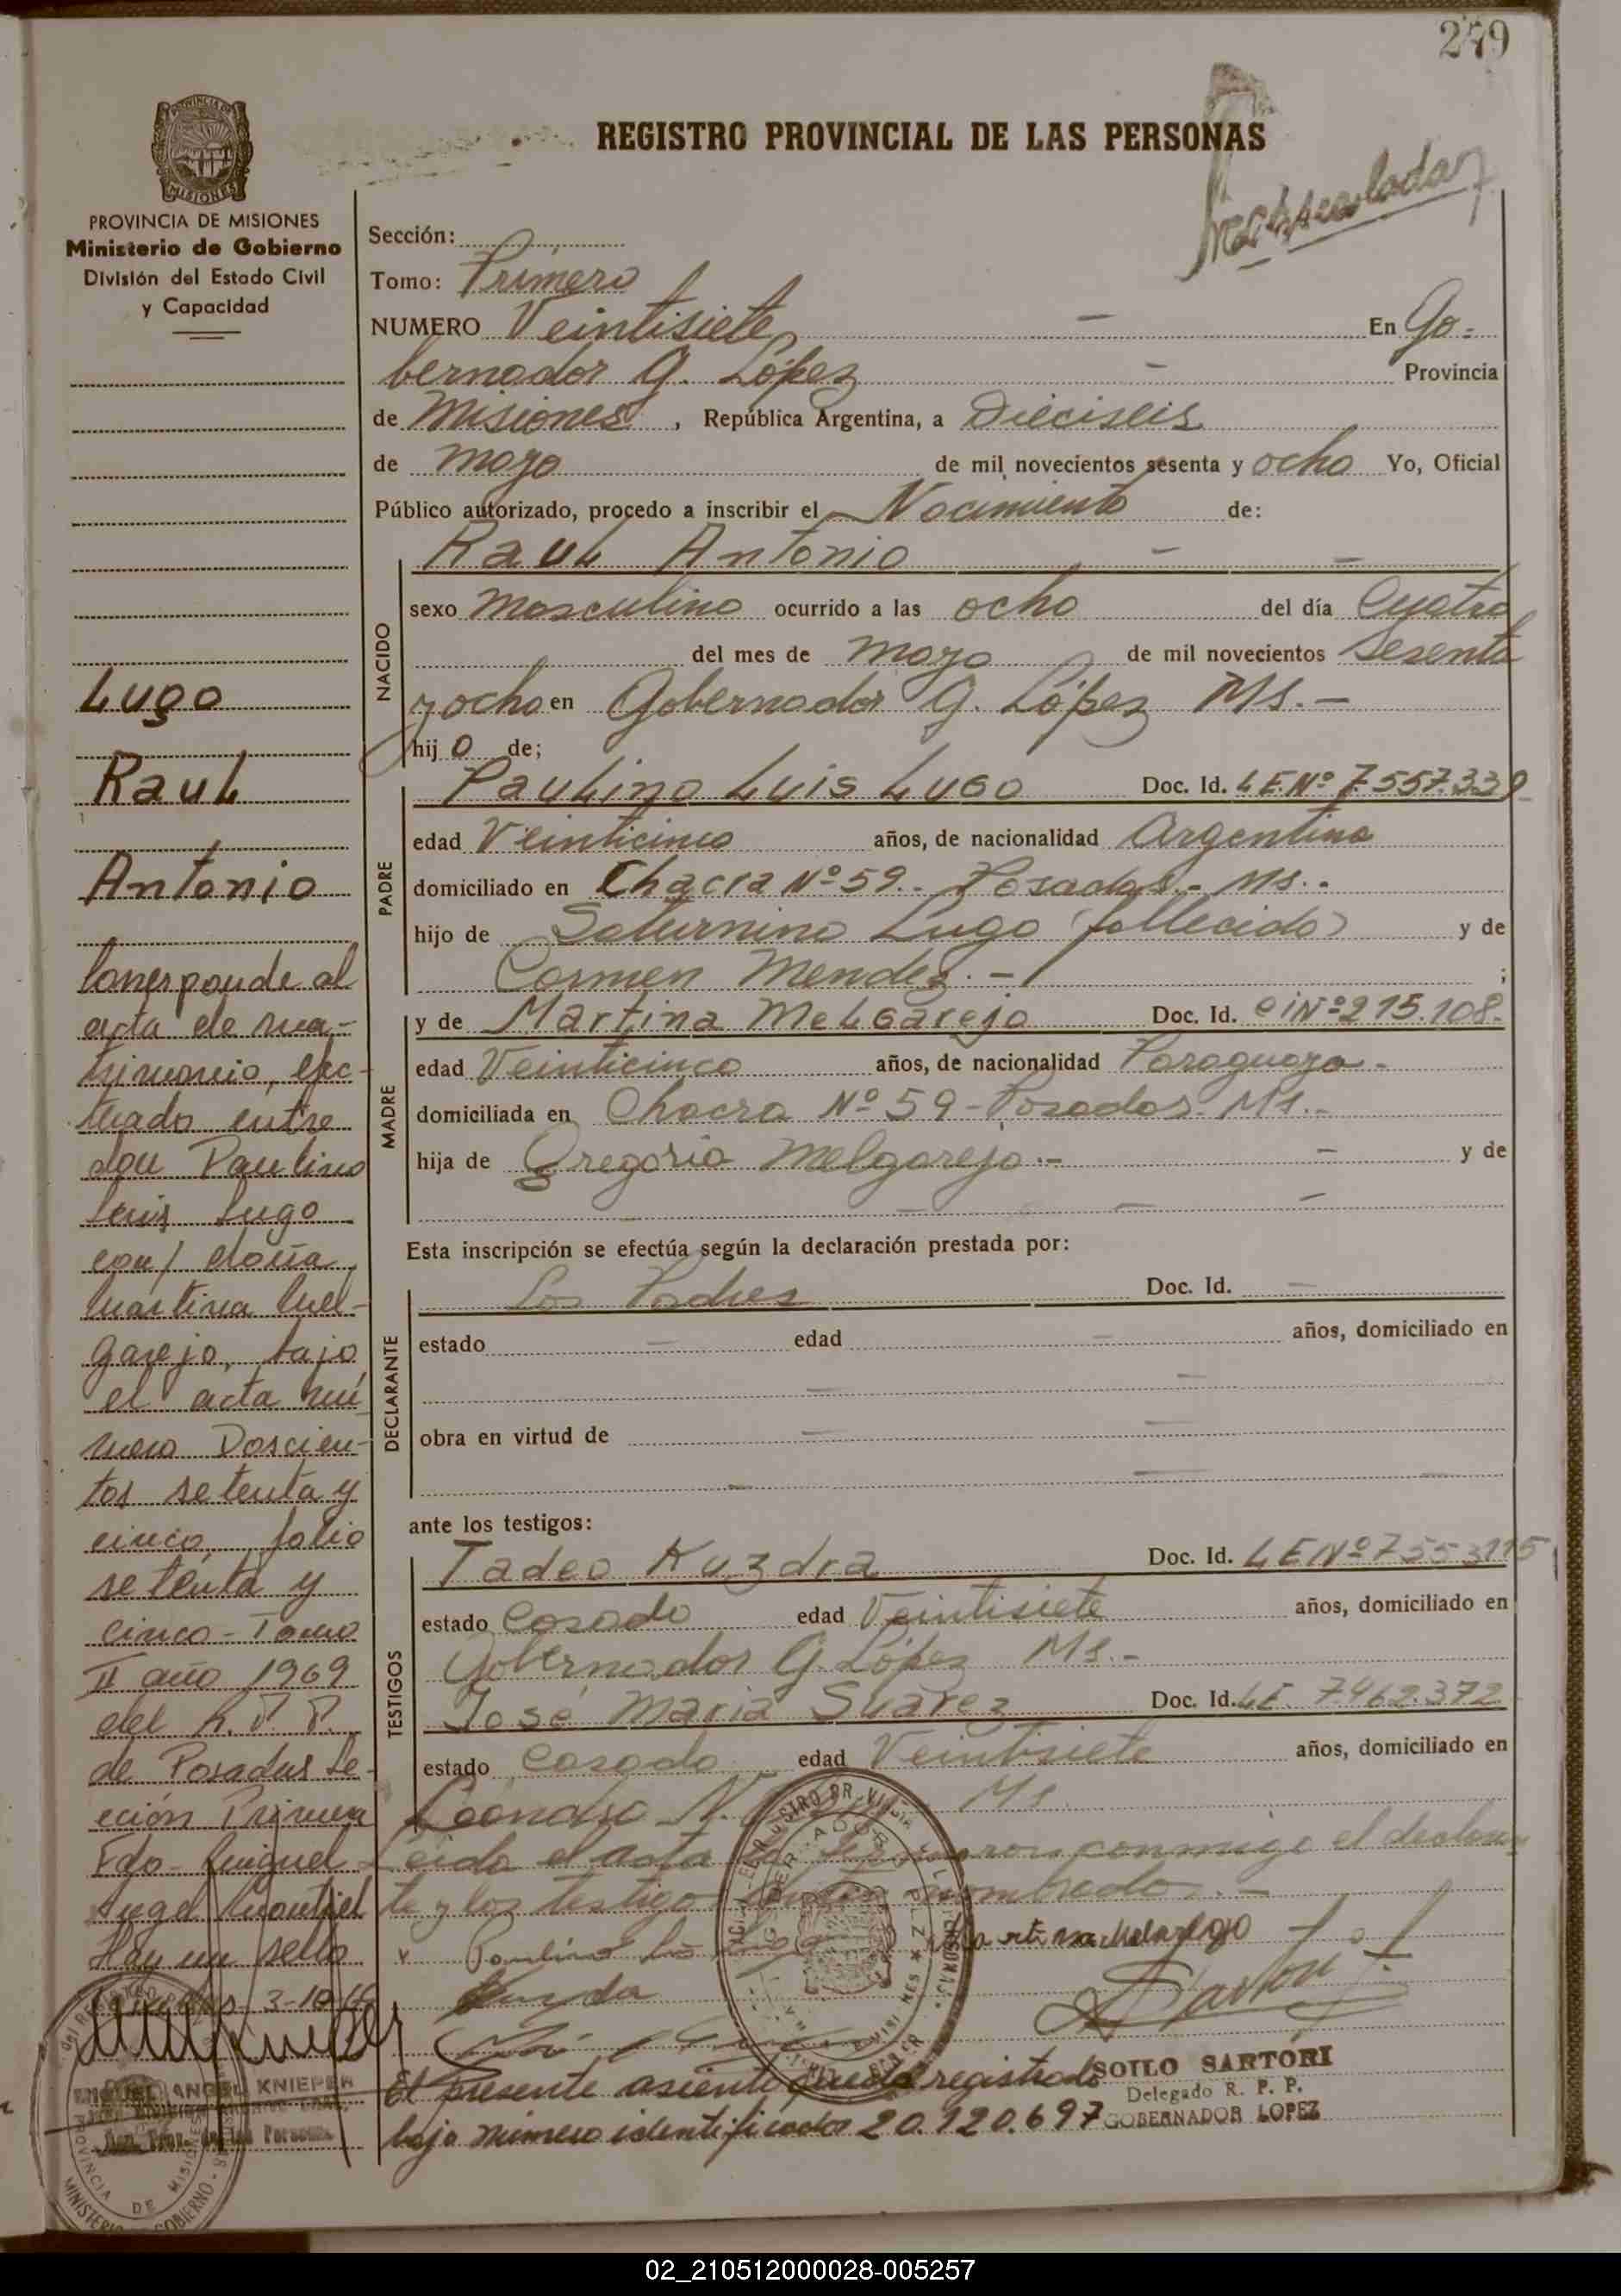 249
REGISTRO PROVINCIAL DE LAS PERSONAS
PROVINCIA DE
MISIONES
PROVINCIA DE MISIONES
Ministerio de Gobierno
División del Estado Civil
y Capacidad
Sección:
Tomo: Primero
NUMERO Veintisiete - En Go-
bernador G. López - Provincia
de Misiones, República Argentina, a Dieciseis
de mayo de mil novecientos sesenta y ocho Yo, Oficial
Público autorizado, procedo a inscribir el Nacimiento de:
NACIDO
Raul Antonio - -
sexo masculino ocurrido a las ocho del día Cuatro
del mes de mayo de mil novecientos sesenta
y ocho en Gobernador G. López Ms.-
hijo de;
PADRE
Paulino Luis Lugo Doc. Id. L.E.Nº 7.557.339
edad Veinticinco años, de nacionalidad Argentina
domiciliado en Chacra Nº 59.- Posadas.- Ms.-
hijo de Saturnino Lugo (fallecido) y de
Carmen Mendez.- ;
MADRE
y de Martina Melgarejo Doc. Id. CiNº 215.108-
edad Veinticinco años, de nacionalidad Paraguaya-
domiciliada en Chacra Nº 59-Posadas- Ms.-
hija de Gregoria Melgarejo.- - y de
- - -
Esta inscripción se efectúa según la declaración prestada por:
DECLARANTE
Los Padres Doc. Id. -
estado - edad - años, domiciliado en
- -
obra en virtud de - -
- - -
ante los testigos:
TESTIGOS
Tadeo Kuzdra Doc. Id. L E Nº 7553115
estado Casado edad Veintisiete años, domiciliado en
Gobernador G. López Ms.-
José Maria Suarez Doc. Id. L.E. 7.462.372
estado Casado edad Veintisiete años, domiciliado en
Leandro N. Ms.
Leida el acta la firmaron conmigo el declaran
te y los testigos nombrados.-
Paulino Luis Lugo Martina Melgarejo
SOILO SARTORI
Delegado R. P. P.
GOBERNADOR LOPEZ
El presente asiento queda registrado
bajo número identificador 20.120.697
Lugo
Raul
Antonio
Corresponde al
acta de ma-
trimonio, efec-
tuado entre
don Paulino
Luis Lugo
con/ doña
Martina Mel-
garejo, bajo
el acta nú
mero Doscien-
tos setenta y
cinco, folio
setenta y
cinco - Tomo
II año 1969
del R. P. P.
de Posadas Se-
cción Primera
Fdo- Miguel
Angel Montiel
Hay un sello
ANGEL KNIEPER
PROVINCIA DE MISIONES
02_210512000028-005257